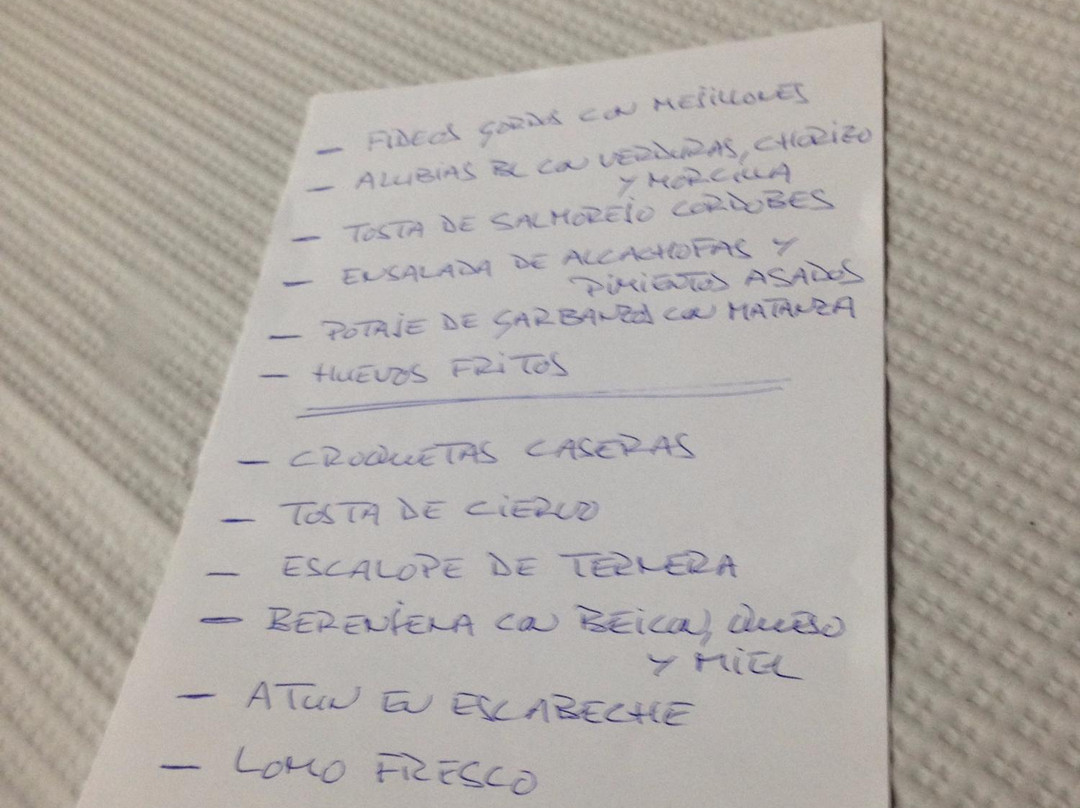 - FIDEOS GORDOS CON MEJILLONES
- ALUBIAS BL CON VERDURAS, CHORIZO
Y MORCILLA
- TOSTA DE SALMOREJO CORDOBES
- ENSALADA DE ALCACHOFAS Y
PIMIENTOS ASADOS
- POTAJE DE GARBANZOS CON MATANZA
- HUEVOS FRITOS
- CROQUETAS CASERAS
- TOSTA DE CIERVO
- ESCALOPE DE TERNERA
- BERENJENA CON BEICON, QUESO
Y MIEL
- ATUN EN ESCABECHE
- LOMO FRESCO